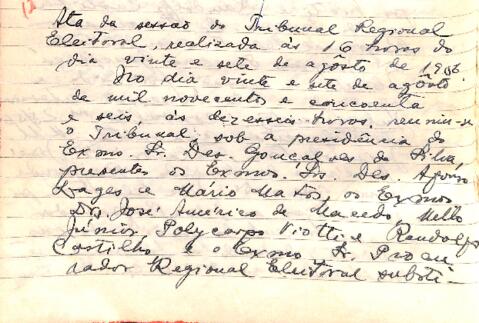 Ata da sessão do Tribunal Regional
Eleitoral, realizada às 16 horas do
dia vinte e sete de agôsto de 1956.
No dia vinte e sete de agôsto
de mil novecentos e cincoenta
e seis, às dezesseis horas, reuniu-se
o Tribunal sob a presidência do
Exmo. Sr. Des. Gonçalves da Silva,
presentes os Exmos. Srs. Des. Afonso
Lages e Mário Matos, os Exmos.
Drs. José Américo de Macedo, Mello
Júnior, Polycarpo Viotti e Rondolfo
Castilho e o Exmo. Sr. Procu
rador Regional Eleitoral substi-